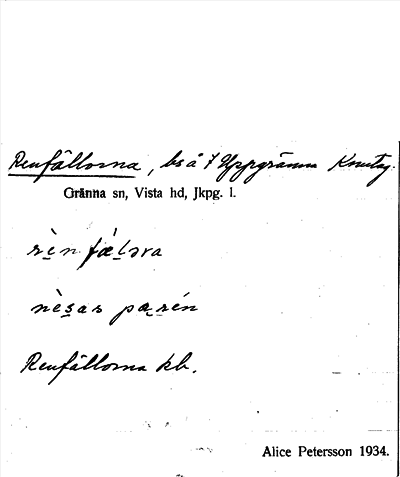 Renfällorna, bs å f Uppgränna Krontag.
Gränna sn, Vista hd, Jkpg. l.
rèn fæ̀lǝra
nèsas pærén
Renfällorna kb.
Alice Petersson 1934.